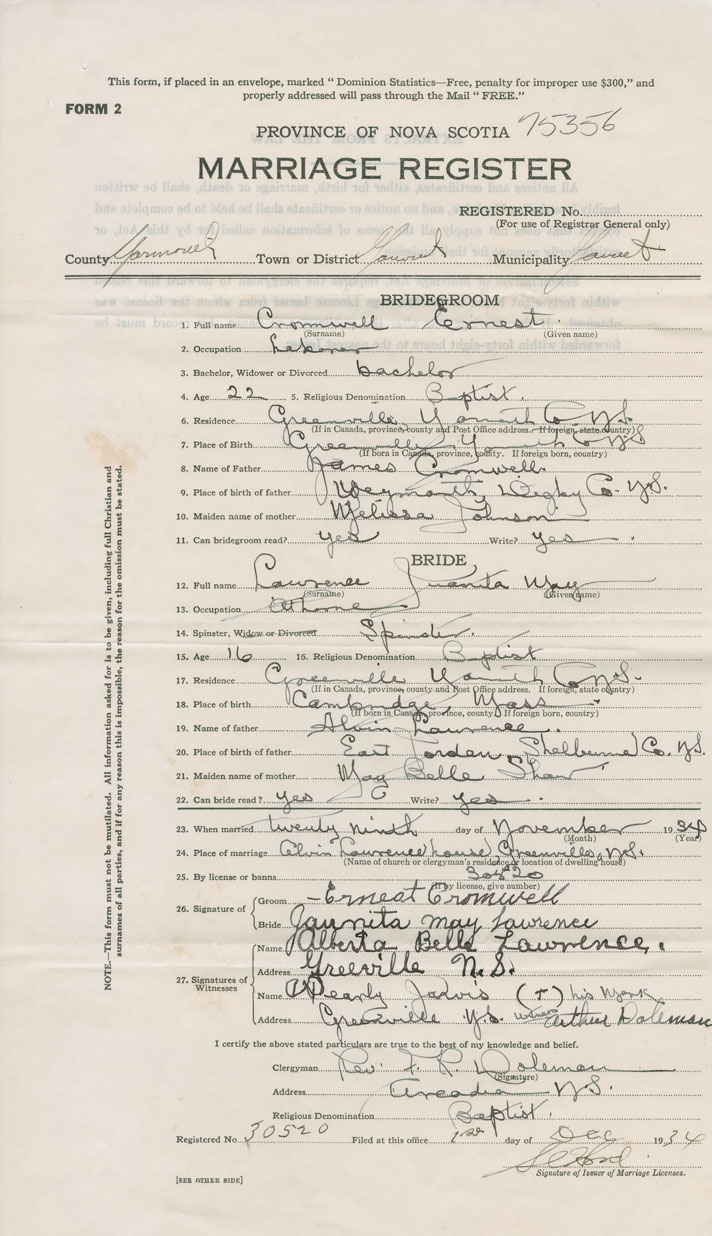 This form, if placed in an envelope, marked " Dominion Statistics—Free, penalty for improper use $300," and
properly addressed will pass through the Mail " FREE."
FORM 2
PROVINCE OF NOVA SCOTIA 75356
MARRIAGE REGISTER
REGISTERED No.
(For use of Registrar General only)
County Yarmouth Town or District Municipality
BRIDEGROOM
1. Full name Cromwell Ernest
(Surname) (Given name)
2. Occupation
3. Bachelor, Widower or Divorced bachelor
4. Age 22 5. Religious Denomination Baptist
6. Residence Greenville Yarmouth Co. N.S.
(If in Canada, province, county and Post Office address. If foreign, state country)
7. Place of Birth Greenville Yarmouth Co N.S
(If born in Canada, province, county. If foreign born, country)
8. Name of Father James Cromwell
9. Place of birth of father Weymouth, Digby Co. N.S.
10. Maiden name of mother Melissa Johnson
11. Can bridegroom read? yes Write? yes
BRIDE
12. Full name Lawrence Juanita May
(Surname) (Given name)
13. Occupation At home
14. Spinster, Widow or Divorced Spinster.
15. Age 16 16. Religious Denomination Baptist
17. Residence Greenville Yarmouth Co N.S.
(If in Canada, province, county and Post Office address. If foreign, state country)
18. Place of birth Cambridge, Mass
(If born in Canada, province, county. If foreign born, country)
19. Name of father Alvin Lawrence
20. Place of birth of father East Jorden, Shelburne Co. N.S.
21. Maiden name of mother May Belle Shaw
22. Can bride read? yes Write? yes
23. When married twenty ninth day of November 1934
(Month) (Year)
24. Place of marriage Alvin Lawrence house, Greenville, N.S.
(Name of church or clergyman's residence or location of dwelling house)
25. By license or banns
(If by license, give number)
26. Signature of Groom Ernest Cromwell
Bride Jaunita may Lawrence
27. Signatures of Witnesses Name Alberta Belle Lawrence.
Address Greeville N.S.
Name Pearly Jarvis (+) his Mark
Address Greenville N.S. witness Arthur Doleman
I certify the above stated particulars are true to the best of my knowledge and belief.
Clergyman Rev. F. R. Doleman
(Signature)
Address Arcadia N.S.
Religious Denomination Baptist.
Registered No. 30520 Filed at this office 1st day of Dec 1934
Signature of Issuer of Marriage Licenses.
[SEE OTHER SIDE]
NOTE.—This form must not be mutilated. All information asked for is to be given, including full Christian and
surnames of all parties, and if for any reason this is impossible, the reason for the omission must be stated.